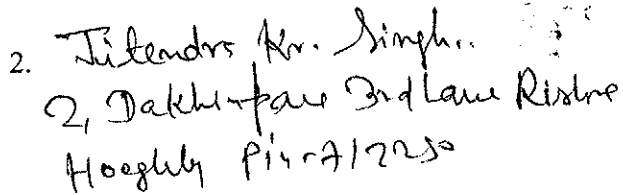 2. Jitendra Kr. Singh.
2, Dakhinpara 3rd Lane Rishra
Hooghly Pin-712250